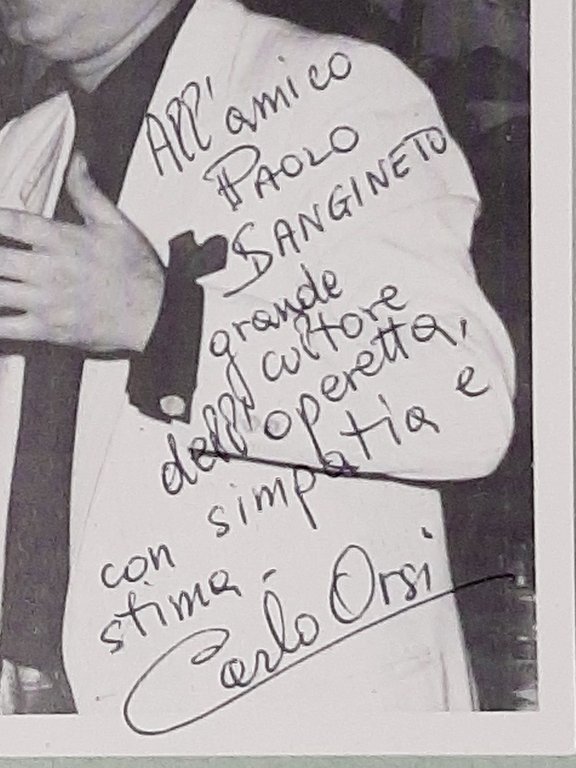 All'amico
PAOLO
SANGINETO
grande
cultore
dell'operetta,
con simpatia e
stima.
Carlo Orsi